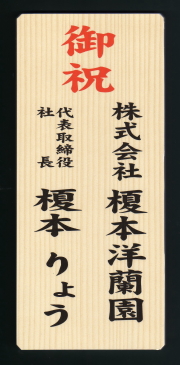 御祝
株式会社 榎本洋蘭園
代表取締役
社長
榎本りょう